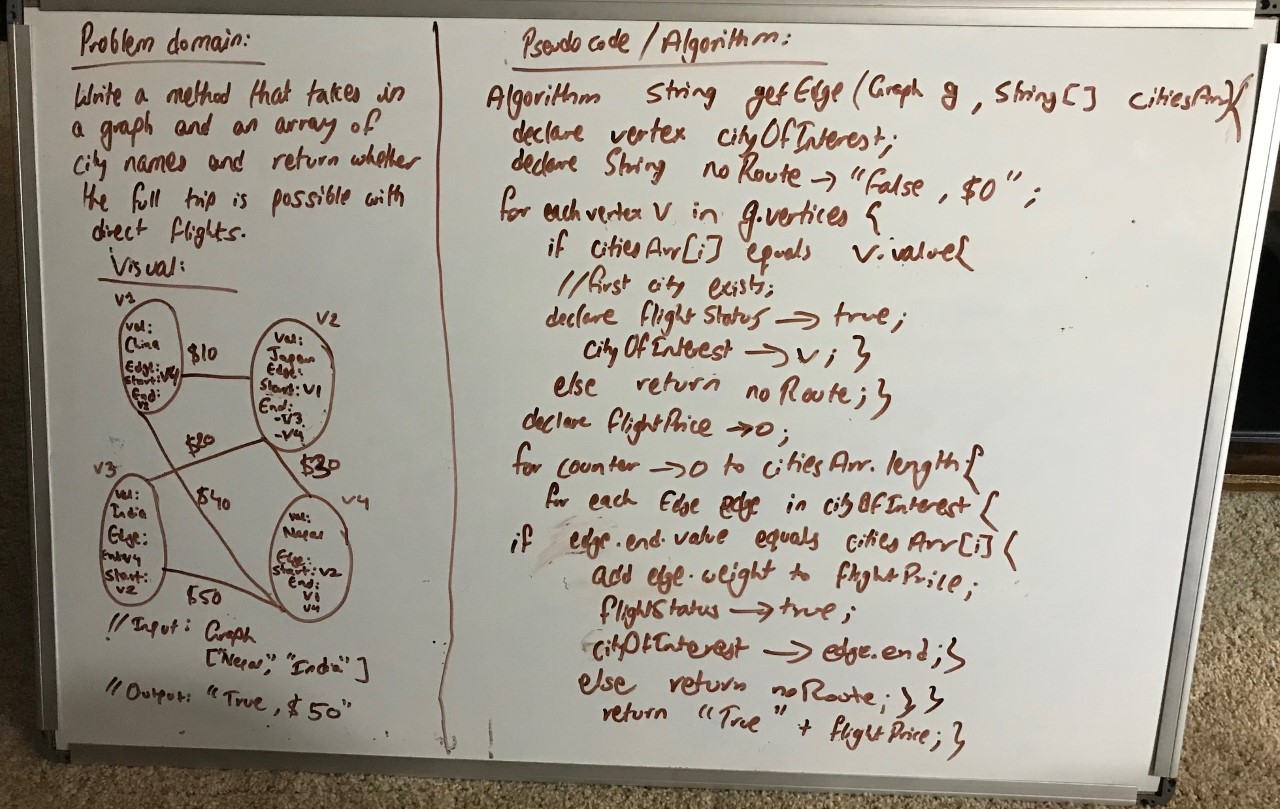 Problem domain:
Write a method that takes in
a graph and an array of
city names and return whether
the full trip is possible with
direct flights.
Visual:
V1
Val:
China
Edge:
Start: V4
End:
V2
$10
V2
Val:
Japan
Edge:
Start: V1
End:
-V3
-V4
$20
$30
$40
V3
Val:
India
Edge:
End: V4
Start:
V2
$50
V4
Val:
Edge:
Start: V2
End:
V1
V4
//Input: Graph
["India"]
//Output: "True, $50"
Pseudo code / Algorithm:
Algorithm String getEdge (Graph g, String[] citiesArr){
declare vertex cityOfInterest;
declare String noRoute → "False, $0";
for each vertex V in g.vertices {
if citiesArr[i] equals V.value{
//first city exists;
declare flightStatus → true;
cityOfInterest → V; }
else return noRoute; }
declare flightPrice → 0;
for counter → 0 to citiesArr.length{
for each Edge edge in cityOfInterest {
if edge.end.value equals citiesArr[i] {
add edge.weight to flightPrice;
flightStatus → true;
cityOfInterest → edge.end; }
else return noRoute; } }
return "True" + flightPrice; }